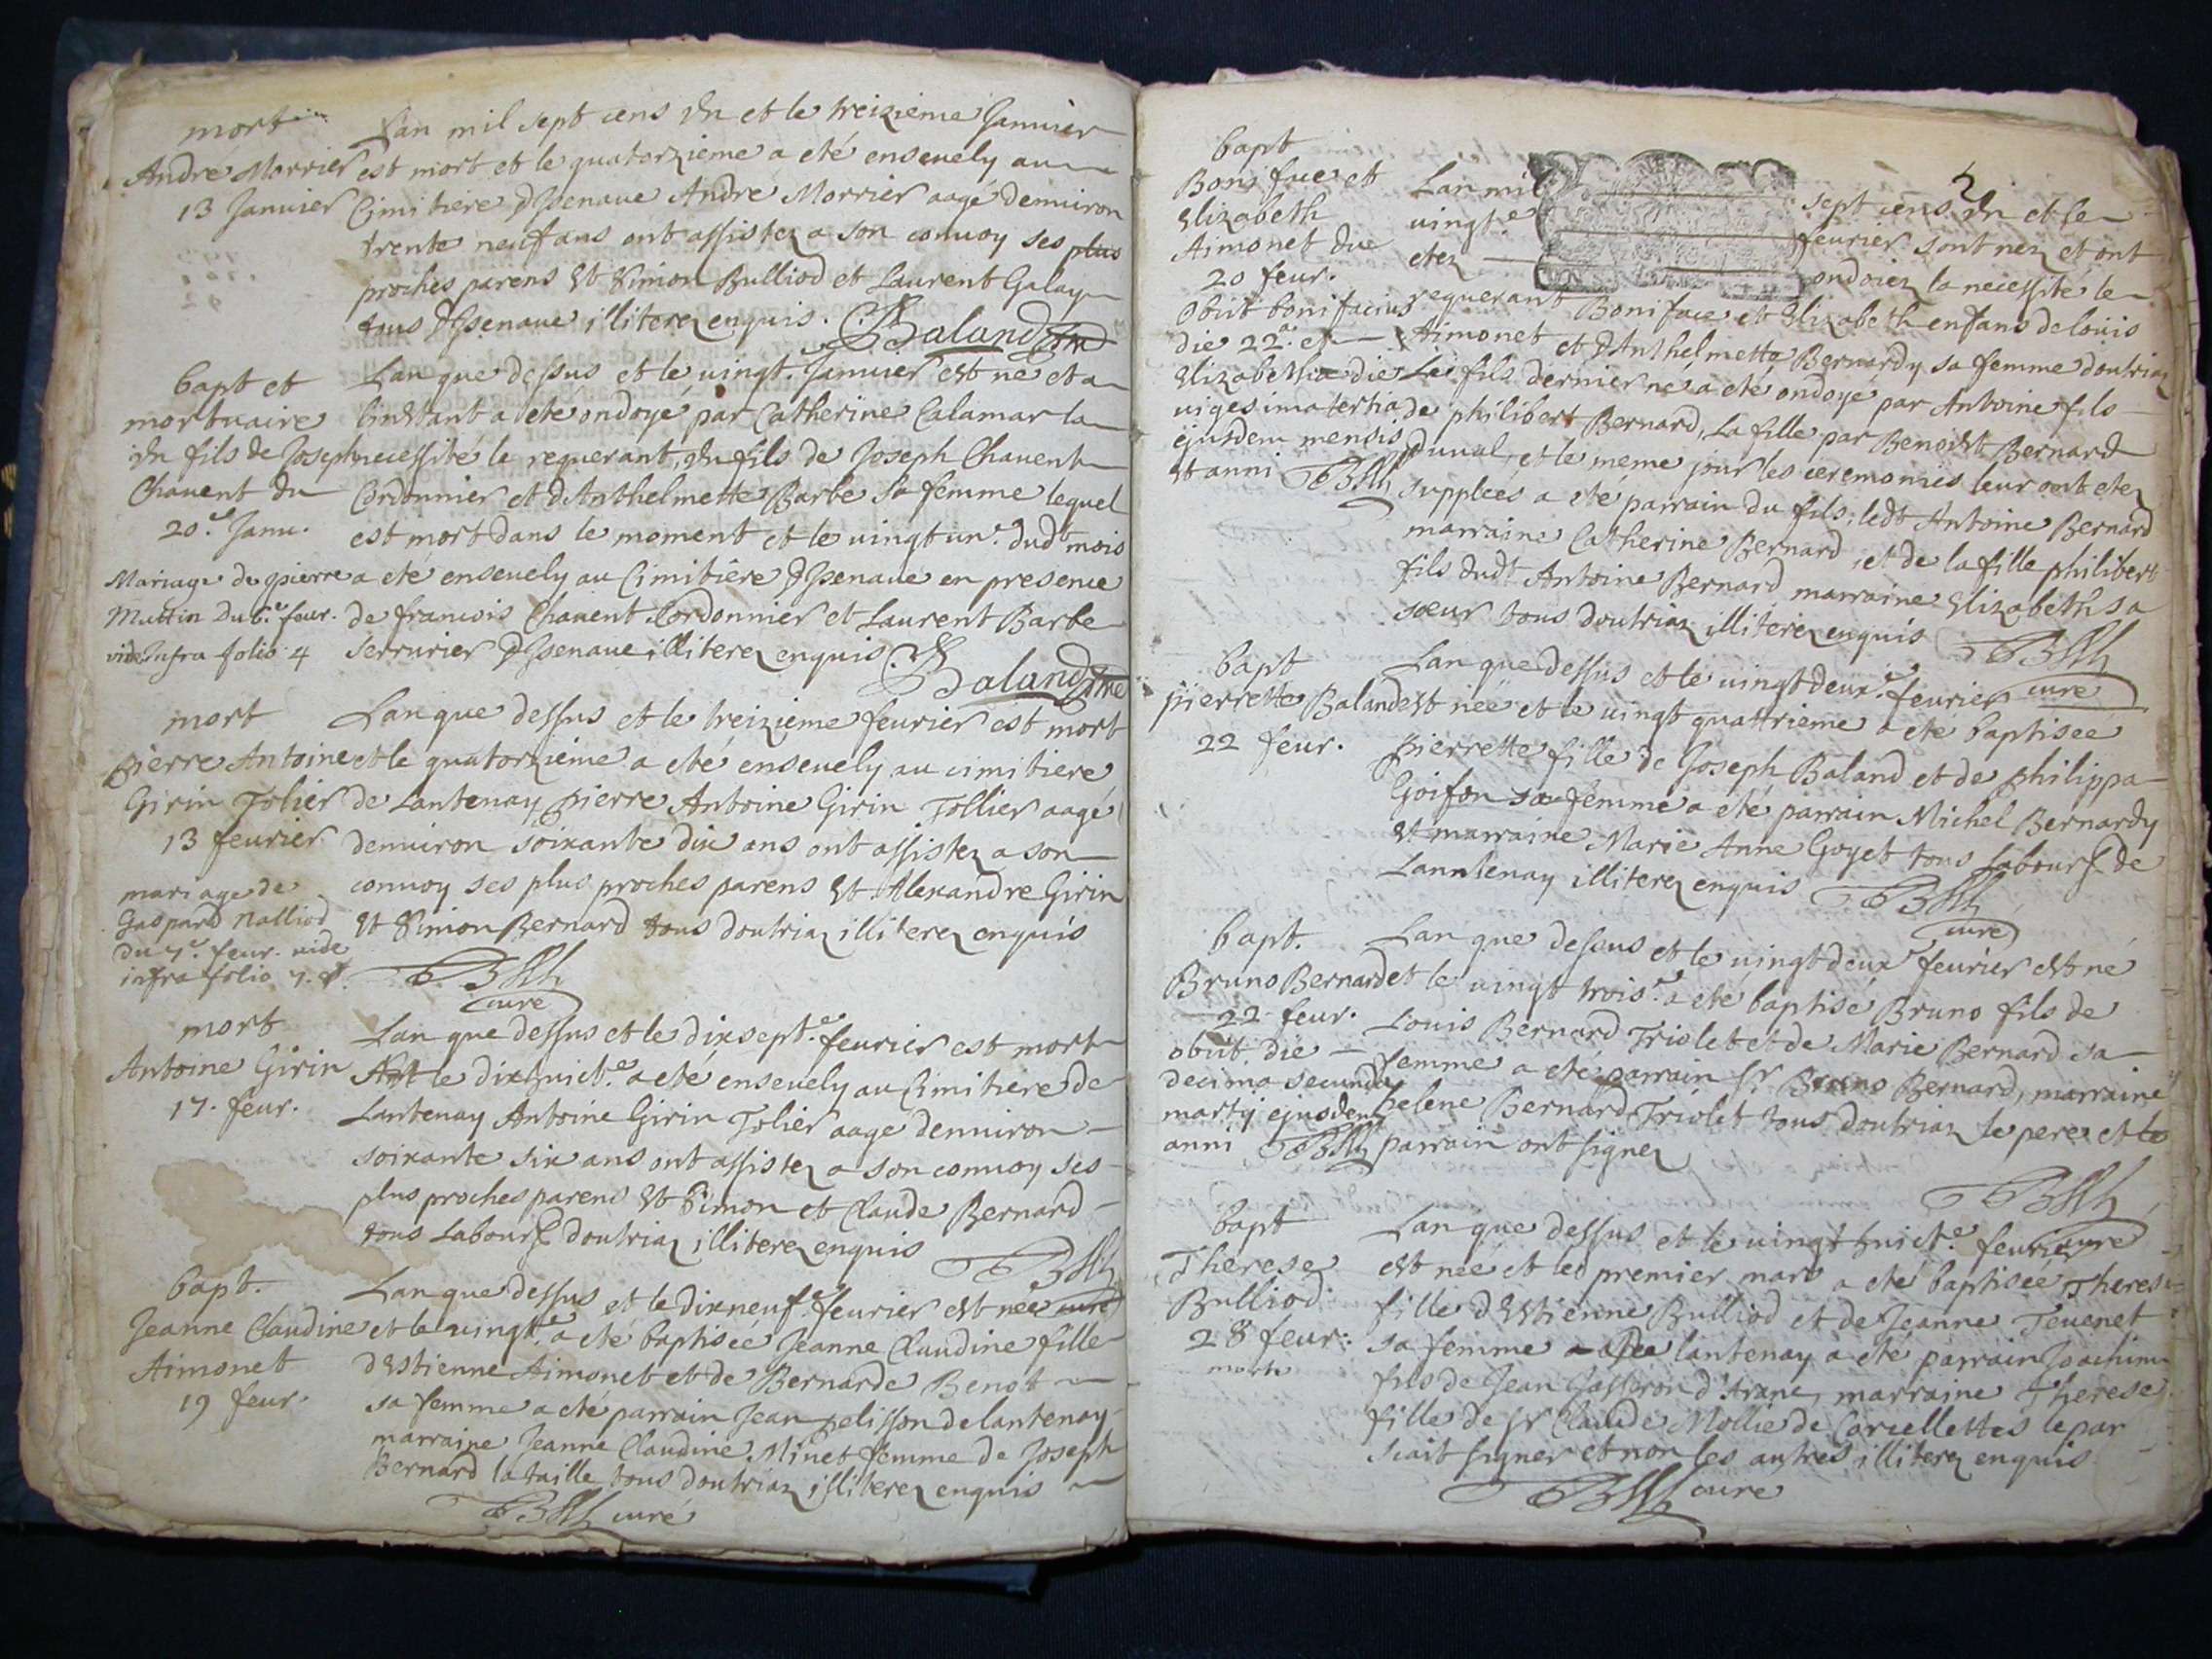 mort
Andre Morrier
13 Januier
Lan mil sept cens Vn et le treizieme Januier
est mort et le quatorzieme a eté enseuely au
Cimitiere dIsenaue Andre Morrier aagé denuiron
trente neuf ans ont assistez a son conuoy ses plus
proches parens Et Simon Bulliod et Laurent Galay
tous dIsenaue illiterez enquis. Baland
bapt et
mortuaire
Vn fils de Joseph
Chauent du
20.e Janu.
Lan que dessus et le uingt.e Januier est né et a
linstant a eté ondoyé par Catherine Calamar la
necessité le requerant, Vn fils de Joseph Chauent
Cordonnier et dAnthelmette Barbe sa femme lequel
est mort dans le moment et le uingt un.e dudt mois
a eté enseuely au Cimitiere dIsenaue en presence
de francois Chauent Cordonnier et Laurent Barbe
serrurier dIsenaue illiterez enquis Baland
Mariage de pierre
Muttin du 6.e feur.
vide Infra folio 4
mort
Pierre Antoine
Girin Tolier
13 feurier
Lan que dessus et le treizieme feurier est mort
et le quatorzieme a eté enseuely au cimitiere
de Lantenay pierre Antoine Girin Tollier aagé
denuiron soixante dix ans ont assistez a son
conuoy ses plus proches parens Et Alexandre Girin
Et Simon Bernard tous doutriaz illiterez enquis
curé
mariage de
Gaspard Nalliod
du 7.e feur. vide
infra folio 7.
mort
Antoine Girin
17. feur.
Lan que dessus et le dix sept.e feurier est mort
Et le dixhuict.e a eté enseuely au Cimitiere de
Lantenay Antoine Girin Tolier aagé denuiron
soixante six ans ont assistez a son conuoy ses
plus proches parens Et Simon et Claude Bernard
tous Labours doutriaz illiterez enquis
curé
bapt.
Jeanne Claudine
Aimonet
19 feur.
Lan que dessus et le dixneuf.e feurier est née
et le uingt.e a eté baptisée Jeanne Claudine fille
dEstienne Aimonet et de Bernarde Benot
sa femme a eté parrain Jean pelisson de lantenay
marraine Jeanne Claudine Minet femme de Joseph
Bernard la taille tous doutriaz illiterez enquis
curé
2
bapt
Boniface et
Elizabeth
Aimonet due
20 feur.
Obiit bonifacius
die 22.a et
Elizabetha die
uigesima tertia
ejusdem mensis
Et anni
Lan mil sept cens Vn et le
uingt.e feurier sont nez et ont
etez ondoiez la necessité le
requerant Boniface et Elizabeth enfans de louis
Aimonet et dAnthelmette Bernardy sa femme doutriaz
Le fils dernier né a eté ondoyé par Antoine fils
de philibert Bernard, La fille par Benoist Bernard
duual, et le méme jour les ceremonies leur ont etez
supplées a eté parrain du fils, ledt Antoine Bernard
marraine Catherine Bernard, et de la fille philibert
fils dudt Antoine Bernard marraine Elizabeth sa
sœur tous doutriaz illiterez enquis
curé
bapt
pierrette Baland
22 feur.
Lan que dessus et le uingtdeux.e feurier
est née et le uingt quattrieme a eté baptisée
pierrette fille de Joseph Baland et de philippa
Goifon sa femme a eté parrain Michel Bernardy
Et marraine Marie Anne Goyet tous Labours de
Lanntenay illiterez enquis
curé
bapt.
Bruno Bernard
22 feur.
obiit die
decima secunda
martij ejusdem
anni
Lan que dessus et le uingtdeux.e feurier est né
et le uingt trois.e a eté baptisé Bruno fils de
Louis Bernard Triolet et de Marie Bernard sa
femme a eté parrain Sr Bruno Bernard, marraine
helene Bernard Triolet tous doutriaz le pere et le
parrain ont signez
curé
bapt
Therese
Bulliod
28 feur:
morte
Lan que dessus et le uingt huict.e feurier
est née et le premier mars a eté baptisée Therese
fille dEstienne Bulliod et de Jeanne Teuenet
sa femme lantenay a eté parrain Joachim
fils de Jean Jasseron d'Aranc, marraine Therese
fille de Sr Claude Mollie de Corcellettes le par
scait signer et non les autres illiterez enquis
curé